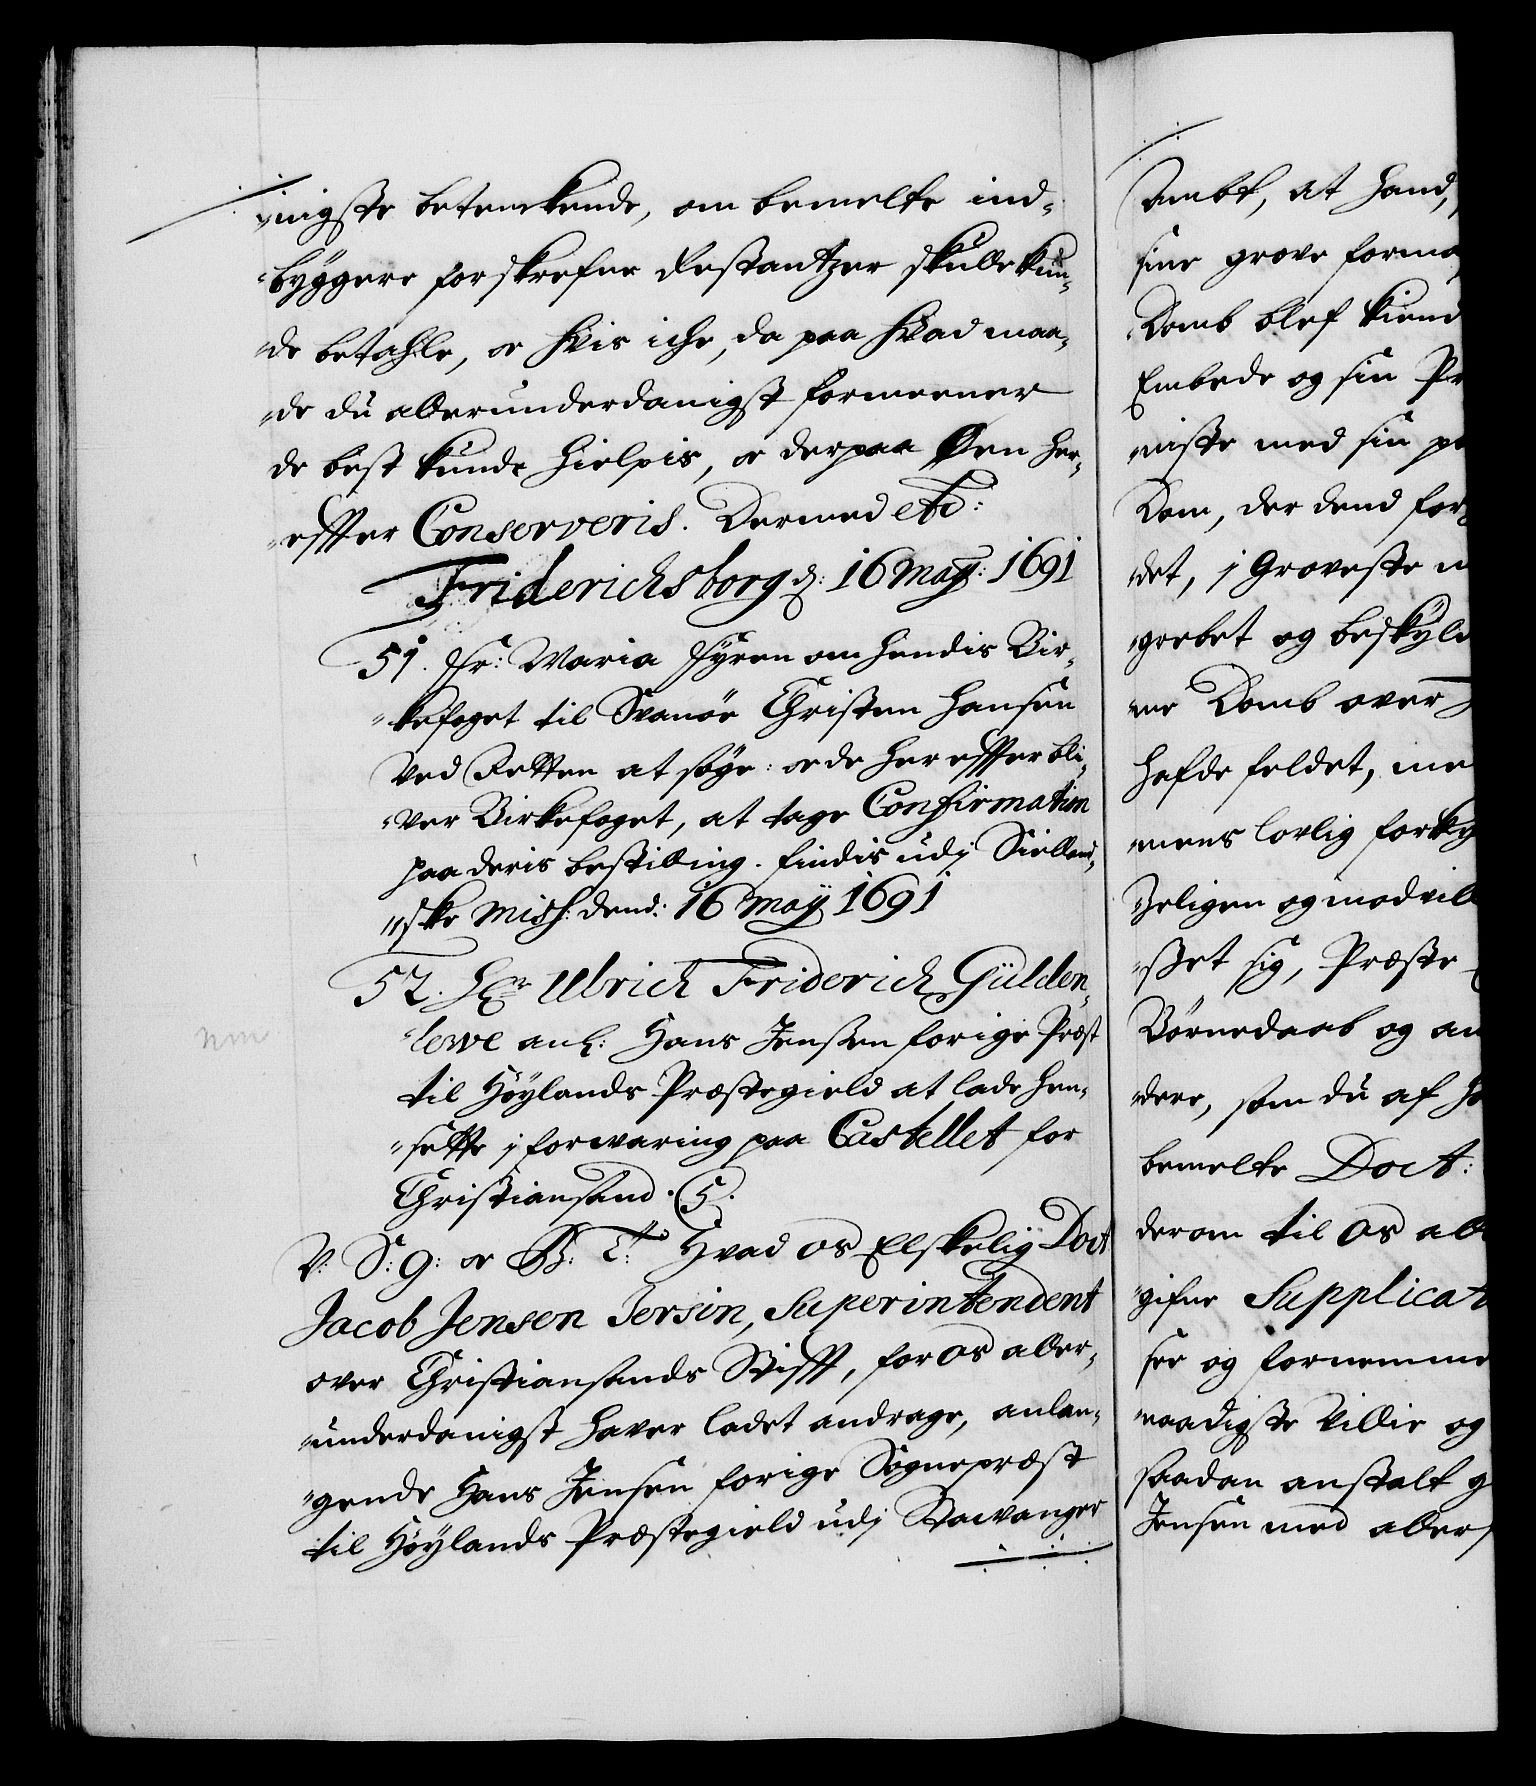 nigste betenckende, om bemelte ind-
byggere forskrefne Restantzer skulle kun-
de betahle, or hvis iche, da paa hvad maa-
de du allerunderdanigst formeener
de best kunde hielpis, or derpaa Øen her-
effter Conserveris. Dermed etc:
Friderichsborg d: 16 May: 1691
51. Fr: Maria Fyren om hendis Bir-
kefoget til Svanøe Christen Hansen
ved Retten at søge: or de her effter bli-
ver Birkefoget, at tage Confirmation
paa deris bestilling. findis udj Siellend-
ske Miss: dend: 16 May 1691
52. Hr Ulrich Friderich Gülden-
lewe anl: Hans Jensen forige Præst
til Høylands Præstegield at lade hen-
sette j forwaring paa Castellet for
Christiansand. S.
V: S: g: or B: T: Hvad os Elskelig Doct
Jacob Jensen Jersin, Superintendent
over Christiansands Stifft, for os aller-
underdanigst haver ladet andrage, anlan-
gende Hans Jensen forige Sognepræst
til Høylands Præstegield udj Stawanger
Ambt, at hand,
sine grove forma
Domb blef kiend
Embede og sin Pr
miste med sin pe
Dom, der dend for
det, j Groveste m
grebet og beskyld
ne Domb over
hafde feldet, me
mens lovlig forky
Zeligen og modvill
sset sig, Præste
Børnedaab og an
dere, som du af h
bemelte Doct:
derom til os all
gifne Supplicat
see og fornemme
naadigste Villie og
saadan anstalt g
Jensen med allers